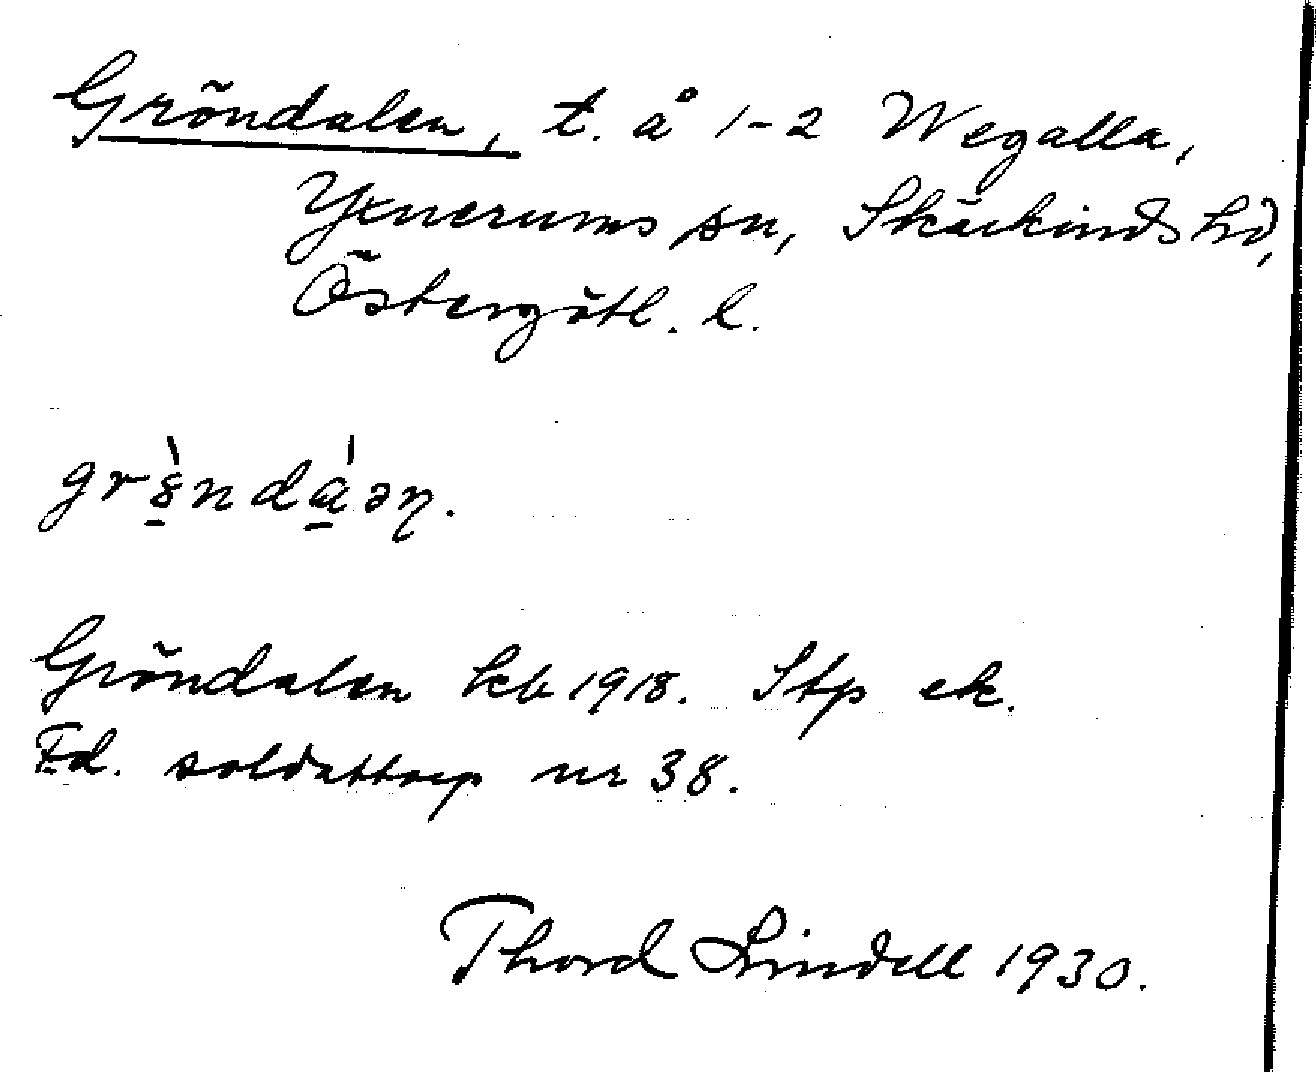 Gröndalen, t. å 1-2 Wegalla,
Yxnerums sn, Skärkinds hd,
Östergötl. l.
grö̀ndáən.
Gröndalen kb 1918. Stp ek.
F.d. soldattorp nr 38.
Thord Lindell 1930.